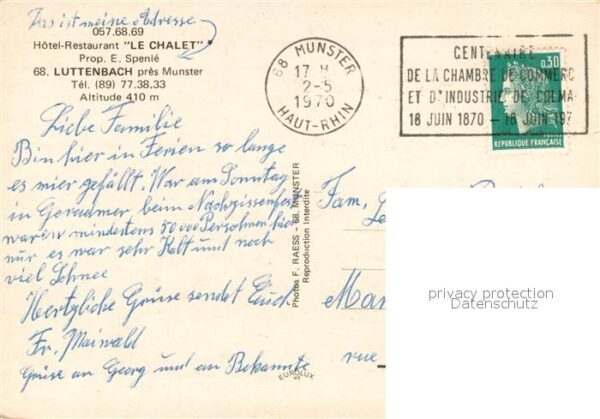 Das ist meine Adresse
057.68.69
Hôtel-Restaurant "LE CHALET"
Prop. E. Spenlé
68. LUTTENBACH près Munster
Tél. (89) 77.38.33
Altitude 410 m
68 MUNSTER
17 H
2-5
1970
HAUT-RHIN
CENTENAIRE
DE LA CHAMBRE DE COMMERC
ET D'INDUSTRIE DE COLMA
18 JUIN 1870 - 18 JUIN 197
0,30
REPUBLIQUE FRANÇAISE
Liebe Familie
Bin hier in Ferien so lange
es mier gefällt. War am Sonntag
in Gerardmer, beim
waren mindestens 50 000 Persohnen hier
nur es war sehr Kalt und noch
viel Schnee
Hertzliche Grüse sendet Euch
Fr. Maiwald
Grüse an Georg und an Bekannte
Photos F. RAESS - 68. MUNSTER
Reproduction Interdite
EUROLUX
Fam.
Mar
rue
privacy protection
Datenschutz